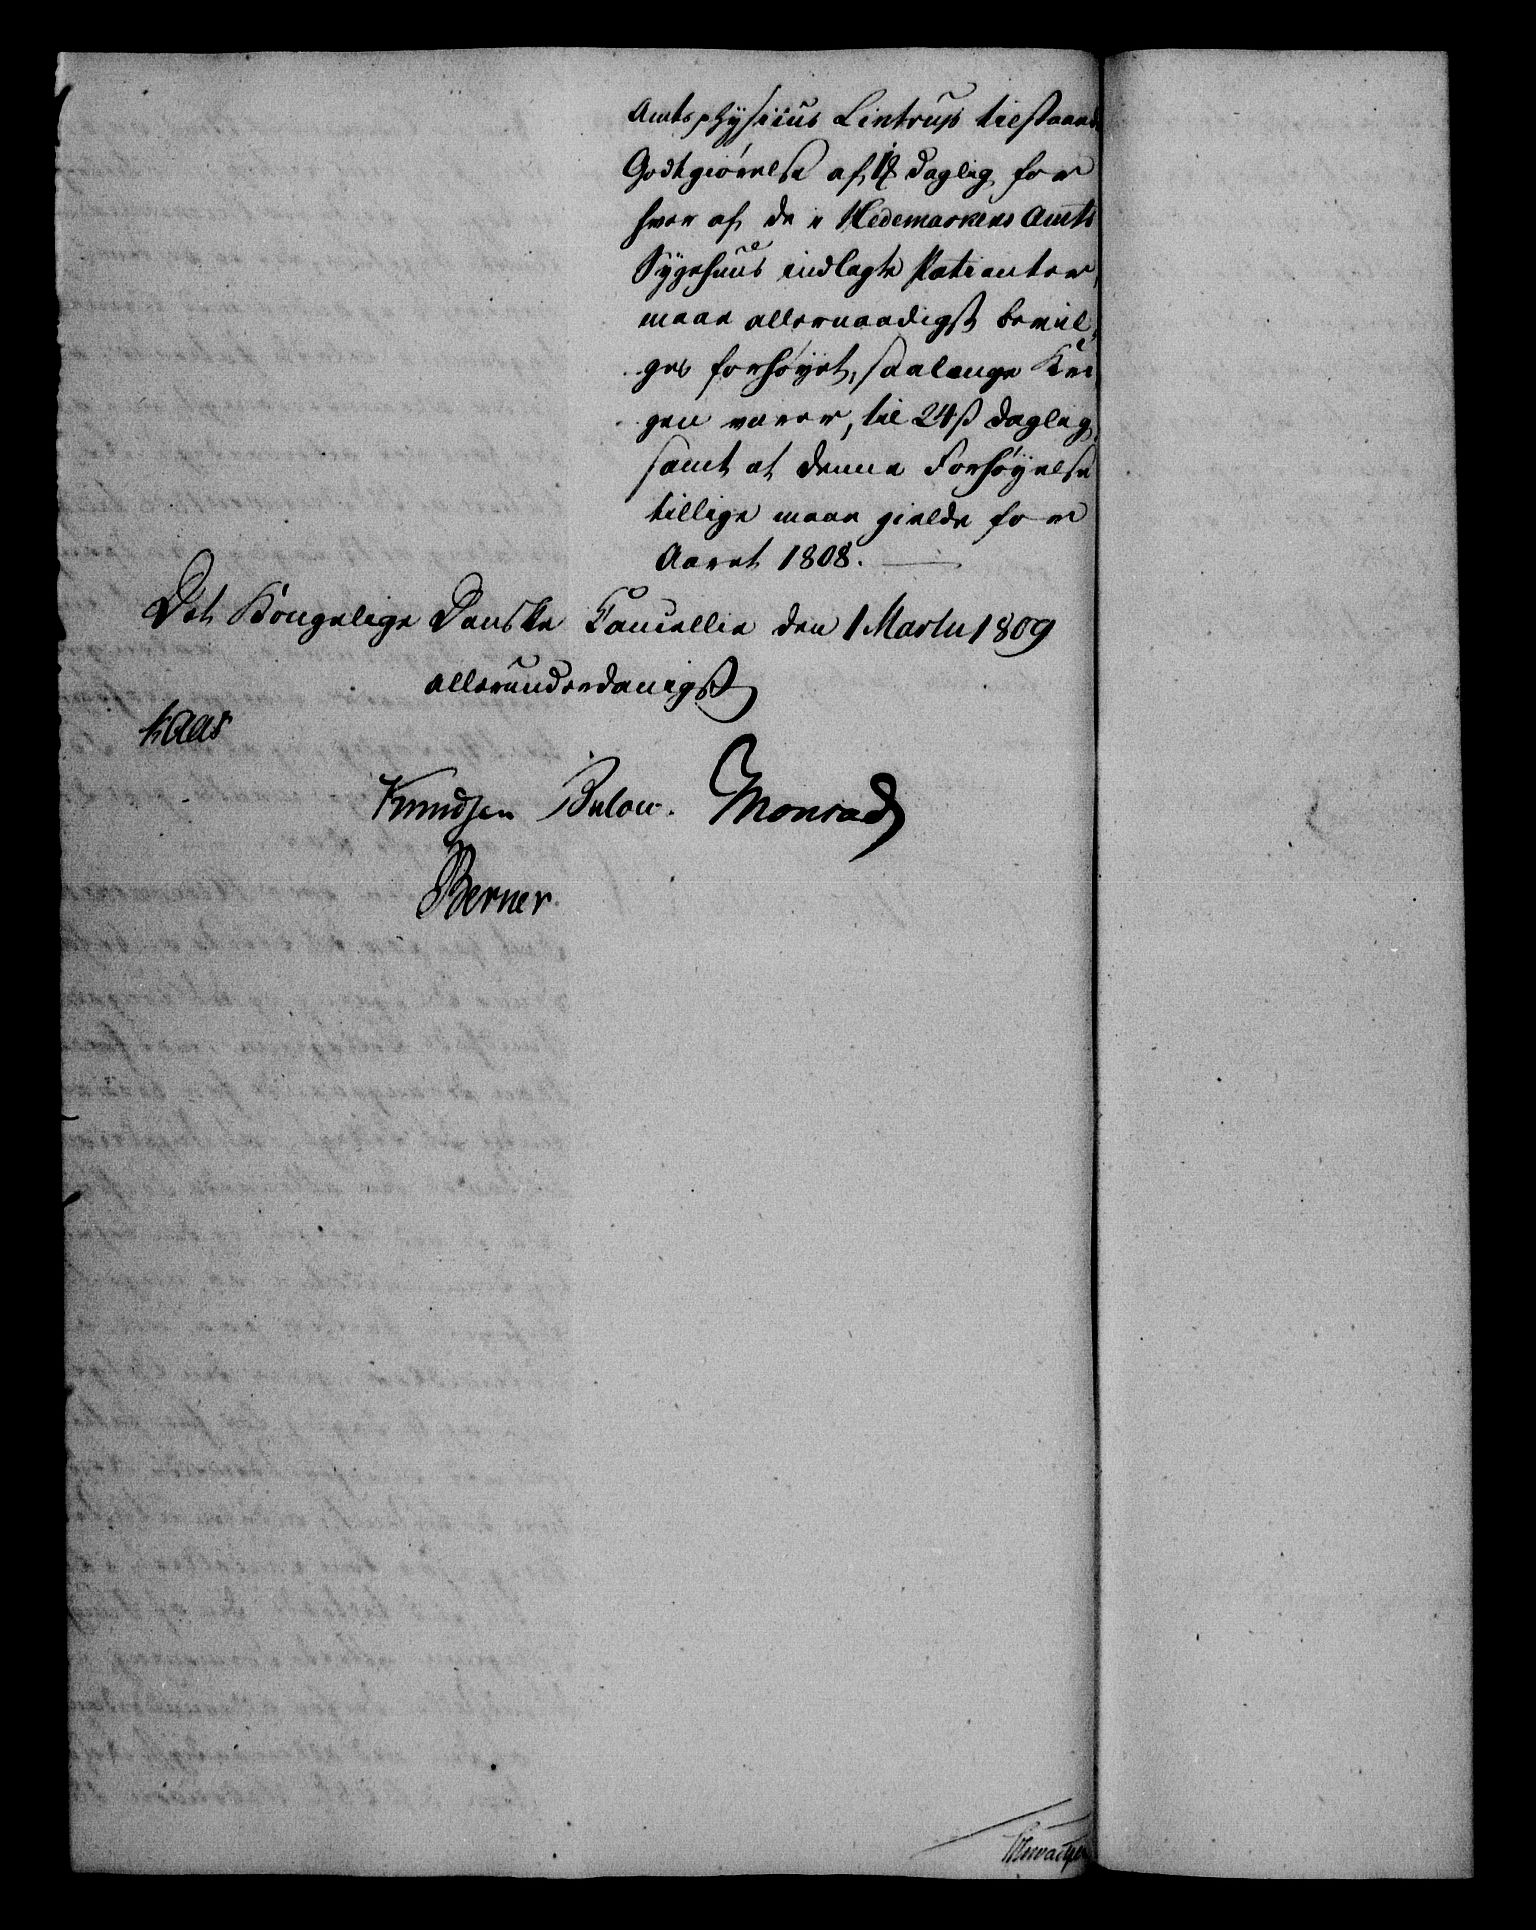 Amtsphysicus Lintrup tilstaaede
Godtgiørelse af daglig for
hver af de i Hedemarkens Amts
Sygehuus indlagte Patienter,
maae allernaadigst bevil-
ges forhøyet, saalænge Kri-
gen varer, til 24 ß daglig,
samt at denne Forhøyelse
tillige maae gielde for
Aaret 1808.
Det Kongelige Danske Cancellie den 1 Martii 1809
allerunderdanigst
Kaas
Knudsen Bülow. Monrad
Berner